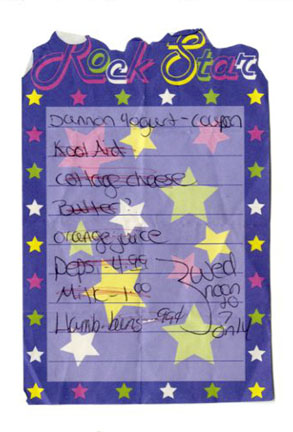 Rock Star
Dannon Yogurt - coupon
Kool Aid
cottage cheese
Butter?
orange juice
Peps 4.99
Milk - 1.00
Hamb-buns - 99¢
Wed
noon
to
7
only